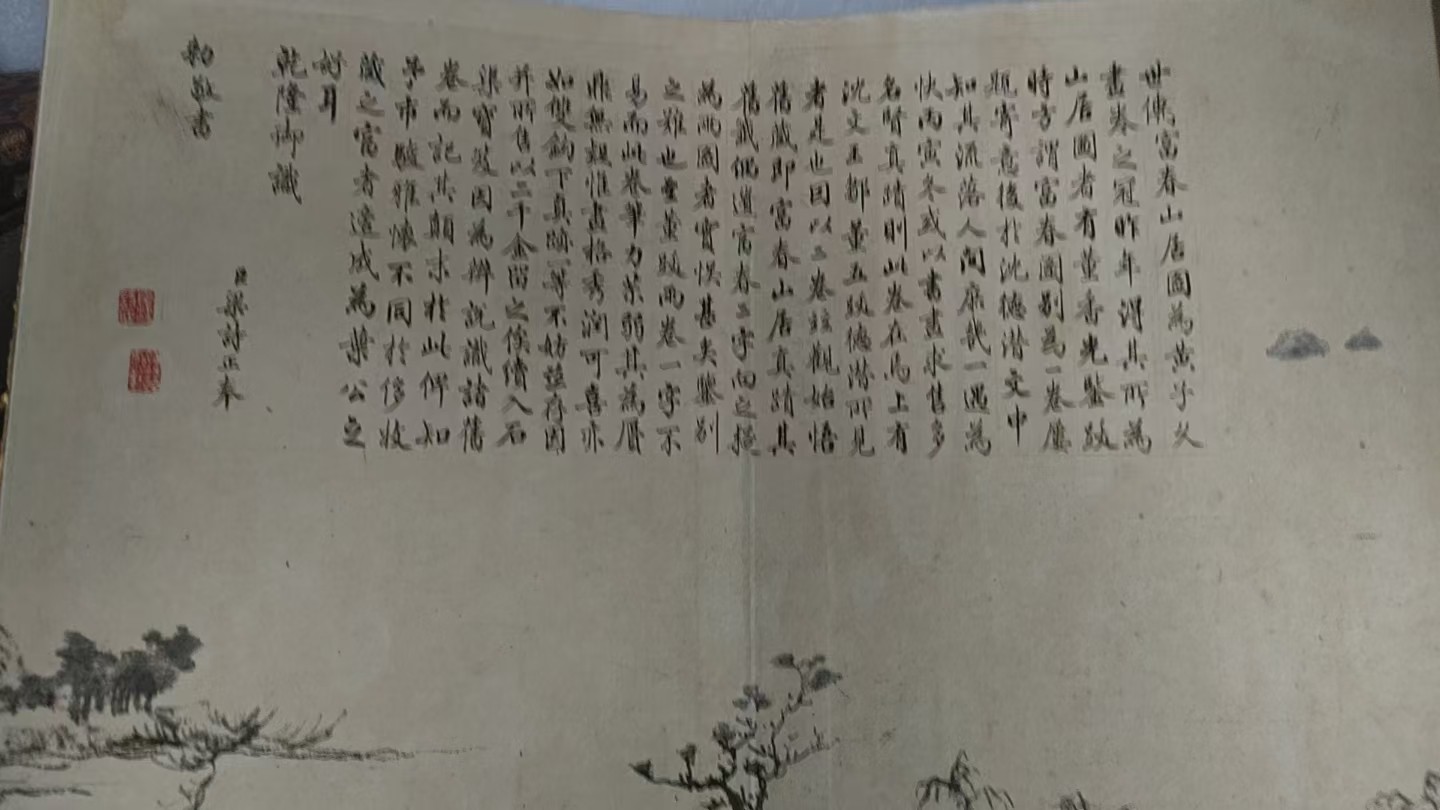 世傳富春山居圖為黃子久
畫卷之冠昨年得其所為
山居圖者有董香光鑒跋
時方謂富春圖別為一卷屢
題寄意後於沈德潛文中
知其流落人間庶幾一遇為
快丙寅冬或以書畫求售多
名賢真蹟則此卷在焉上有
沈文王鄒董五跋德潛所見
者是也因以二卷竝觀始悟
舊藏即富春山居真蹟其
舊籤偶遺富春二字向之疑
為兩圖者實悞甚矣鑒別
之難也至董跋兩卷一字不
易而此卷筆力苶弱其為贋
鼎無疑惟畫格秀潤可喜亦
如雙鈎下真跡一等不妨竝存因
并所售以二千金留之俟續入石
渠寶笈因為辨說識諸舊
卷而記其顛末於此俾知
予市駿雅懷不同於侈收
藏之富者遽成為葉公之
好耳
乾隆御識
臣梁詩正奉
勅敬書